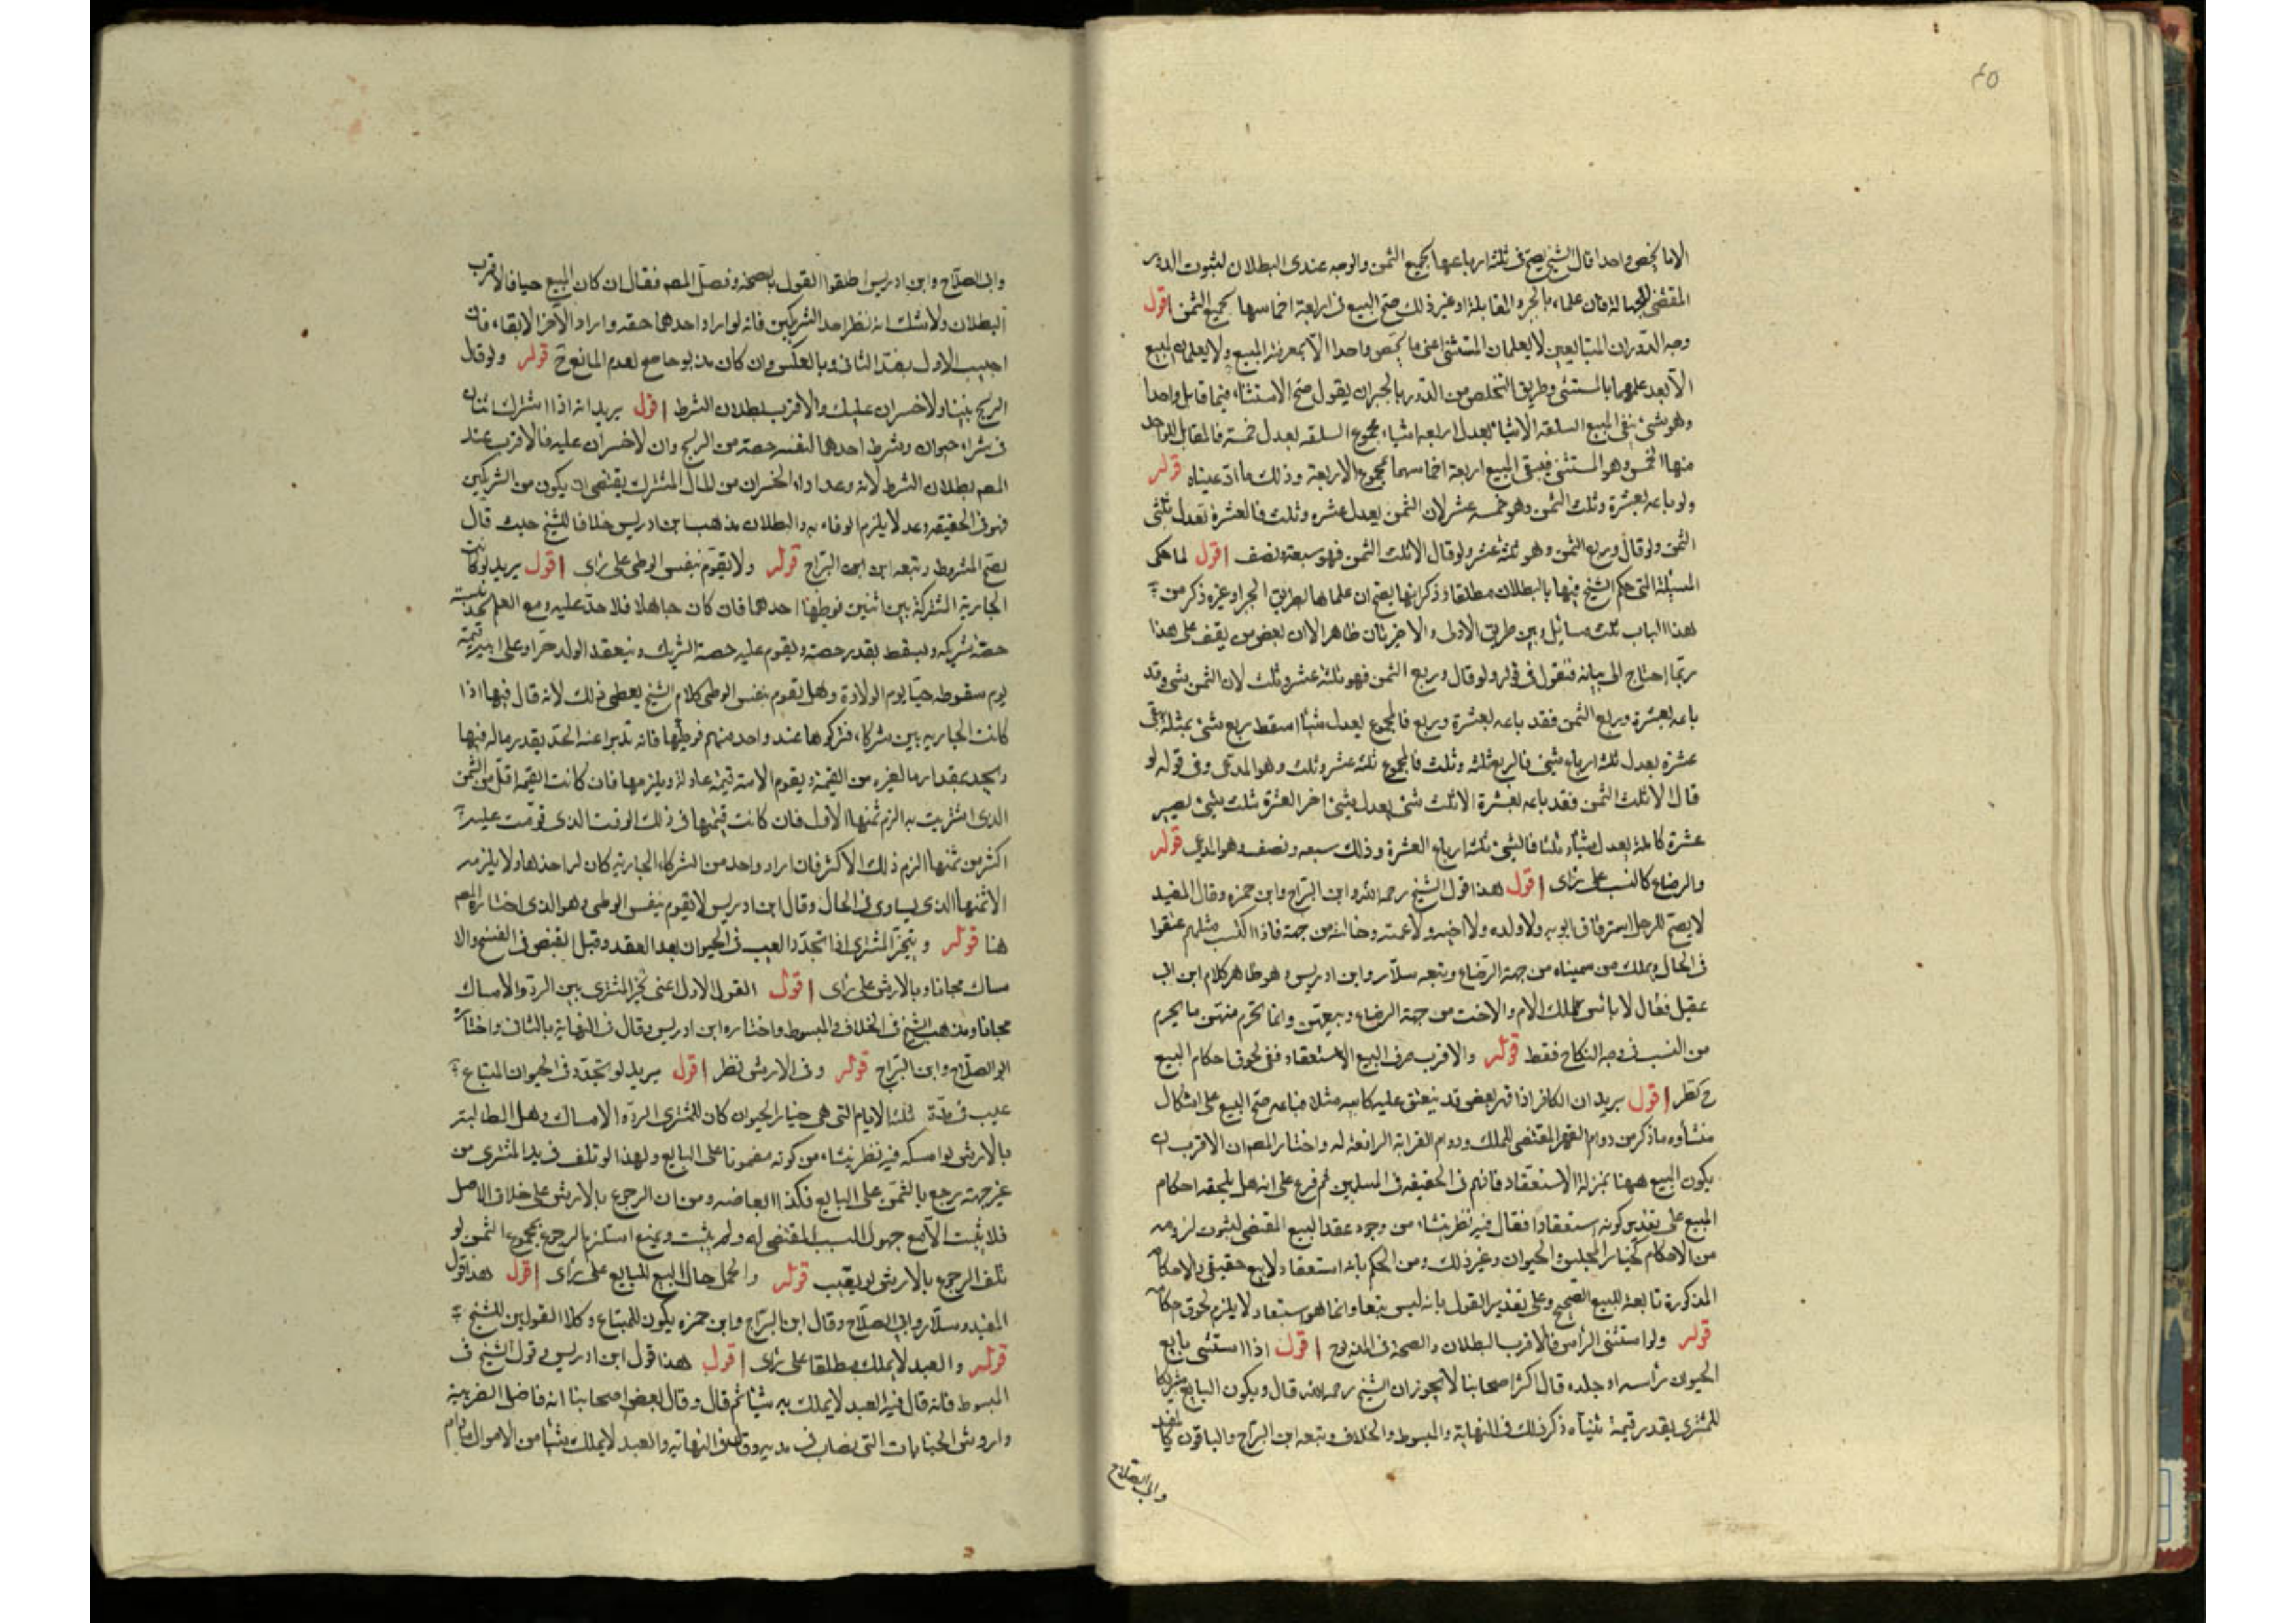 ٤٥
الا ما يخص واحدا قال الشيخ يصح في ثلثة ارباعها بجميع الثمن والوجه عندى البطلان لثبوت الدور
المقتضى للجهالة فان علما بالجبر والمقابلة او غير ذلك صح البيع في اربعة اخماسها بجميع الثمن اقول
وجه الدور ان المتبايعين لا يعلمان المستثنى اعنى ما يخص واحدا الا بمعرفة المبيع ولا يعلمان المبيع
الا بعد علمهما بالمستثنى وطريق التخلص من الدور بالجبر ان يقول صح الاستثناء فيما قابل واحدا
وهو شئ بقى المبيع السلعة الا شيئا يعدل اربعة اشياء فجموع السلعة يعدل خمسة فالمقابل للواحد
منها الخمس وهو المستثنى فيبقى المبيع اربعة اخماسها بمجموع الاربعة وذلك ما ادعيناه قوله
ولو باعه بعشرة وثلث الثمن وهو خمسة عشر لان الثمن يعدل عشرة وثلث فالعشرة تعدل ثلثى
الثمن ولو قال وربع الثمن وهو ثلثة عشر ولو قال الا ثلث الثمن فهو سبعة ونصف اقول لما حكى
المسئلة التى حكم الشيخ فيها بالبطلان مطلقا وذكر انها يصح ان علماها بطريق الجبر او غيره ذكر من
هذا الباب ثلث مسائل وبين طريق الاولى والاخيرتان ظاهر الا ان بعض من يقف على هذا
ربما احتاج الى بيانه فنقول في قوله ولو قال وربع الثمن فهو ثلثة عشر وثلث لان الثمن شئ وقد
باعه بعشرة وربع الثمن فقد باعه بعشرة وربع فالمجموع يعدل شيئا اسقط ربع شئ بمثله بقى
عشرة يعدل ثلثة ارباع شئ فالربع ثلثة وثلث فالمجموع ثلثة عشر وثلث وهو المدعى وفى قوله لو
قال الا ثلث الثمن فقد باعه بعشرة الا ثلث شئ يعدل شئ اجبر العشرة بثلث شئ يصير
عشرة كاملة يعدل شيئا وثلثا فالشئ ثلثة ارباع العشرة وذلك سبعة ونصف وهو المدعى قوله
والرضاع كالنسب على راى اقول هذا قول الشيخ رحمه الله وابن البراج وابن حمزه وقال المفيد
لا يصح للرجل استرقاق ابويه ولا ولده ولا اخته ولا عمته وخالته من جهة فاذا النسب مثلهم عتقوا
في الحال ويملك من سميناه من جهة الرضاع وتبعه سلار وابن ادريس وهو ظاهر كلام ابن ابى
عقيل فقال لا بأس بملك الام والاخت من جهة الرضاع وبيعهن وانما تحرم منهن ما يحرم
من النسب في وجه النكاح فقط قوله والاقرب صرف البيع الاستنقاذ ففى لحوق احكام البيع
ح نظر اقول يريد ان الكافر اذا قهر بعض قد ينعتق عليه كابيه مثلا فباعه صح البيع على اشكال
منشأوه ما ذكر من دوام القهر المقتضى للملك ودوام القرابة الرافعة له واختار المص ان الاقرب ان
يكون البيع ههنا بمنزلة الاستنقاذ فانهم في الحقيقه فى المسلمين ثم فرع على انه هل يلحقه احكام
البيع على تقدير كونه استنقاذا فقال فيه نظر ينشاء من وجود عقد البيع المقتضى لثبوت لزومه
من الاحكام كخيار المجلس والحيوان وغير ذلك ومن الحكم بانه استنقاذ لا بيع حقيقى والاحكام
المذكورة تابعة للبيع الصحيح وعلى تقدير القول بانه ليس بيعا وانما هو استنقاذ لا يلزم لحوق احكام
قوله ولو استثنى الراس فالاقرب البطلان والصحة في المذبوح اقول اذا استثنى بايع
الحيوان رأسه او جلده قال اكثر اصحابنا لا يجوز ان الشيخ رحمه الله قال ويكون البايع شريكا
للمشترى بقدر قيمة ثنياه ذكر ذلك في النهاية والمبسوط والخلاف وتبعه ابن البراج والباقون كالمفيد
وابى الصلاح
وابى الصلاح وابن ادريس اطلقوا القول بالصحة وفصل المص فقال ان كان المبيع حيا فالاقرب
البطلان ولا شك انه نظر احد الشريكين فانه لو اراد احدهما حقه واراد الآخر الابقاء فان
اجيب الاول بضد الثانى وبالعكس وان كان مذبوحا صح لعدم المانع ح قوله ولو قال
الربح بيننا ولا خسران عليك والاقرب بطلان الشرط اقول يريد انه اذا اشترك اثنان
في شراء حيوان وشرط احدهما لنفسه حصة من الربح وان لا خسران عليه فالاقرب عند
المص بطلان الشرط لانه وعد اداء الخسران من المال المشترك يقتضى ان يكون من الشريكين
فهو فى الحقيقه وعد لا يلزم الوفاء به والبطلان مذهب ابن ادريس خلافا للشيخ حيث قال
يصح المشروط وتبعه ابن البراج قوله ولا يقوم بنفس الوطى على راى اقول يريد لو كانت
الجارية المشتركة بين اثنين فوطئها احدهما فان كان جاهلا فلا حد عليه ومع العلم يحد بنسبة
حصة شريكه ويسقط بقدر حصته ويقوم عليه حصة الشريك وينعقد الولد حرا وعلى ابيه قيمته
يوم سقوطه حيا يوم الولادة وهل يقوم بنفس الوطى كلام الشيخ يعطى ذلك لانه قال فيها اذا
كانت الجاريه بين شركاء فتركوها عند واحد منهم فوطئها فانه تدرا عنه الحد بقدر ماله فيها
ويحد بمقدار ما لغيره من القيمة ويقوم الامة قيمة عادلة ويلزمها فان كانت القيمة اقل من الثمن
الذى اشتريت به الزم ثمنها الاول فان كانت قيمتها فى ذلك الوقت الذى قومت عليه
اكثر من ثمنها الزم ذلك الاكثر فان اراد واحد من الشركاء الجارية كان له اخذها ولا يلزمه
الا ثمنها الذى يساوى فى الحال وقال ابن ادريس لا يقوم بنفس الوطى وهو الذى اختاره المص
هنا قوله ويتخير المشترى اذا تجدد العيب فى الحيوان بعد العقد وقبل القبض فى الفسخ والا
مساك مجانا وبالارش على راى اقول القول الاول اعنى تخير المشترى بين الرد والامساك
مجانا ومذهب الشيخ فى الخلاف والمبسوط واختاره ابن ادريس وقال فى النهاية بالثانى واختاره
ابو الصلاح وابن البراج قوله وفى الارش نظر اقول يريد لو تجدد فى الحيوان المتباع
عيب فى مدة ثلثة الايام التى هى خيار الحيوان كان للمشترى الرد والامساك وهل المطالبة
بالارش لو امسكه فيه نظر ينشاء من كونه مضمونا على البايع ولهذا لو تلف فى يد المشترى من
غير جهته رجع بالثمن على البايع فكذا ابعاضه ومن ان الرجوع بالارش على خلاف الاصل
فلا يثبت الا مع حصول السبب المقتضى له ولم يثبت ويمنع استلزام الرجوع بمجموع الثمن لو
تلف الرجوع بالارش لو تعيب قوله والحمل حال البيع للبايع على رأى اقول هذا قول
المفيد وسلار وابى الصلاح وقال ابن البراج وابن حمزه يكون للمبتاع وكلا القولين للشيخ
قوله والعبد لا يملك مطلقا على راى اقول هذا قول ابن ادريس وقول الشيخ فى
المبسوط فانه قال فيه العبد لا يملك شيئا ثم قال وقال بعض اصحابنا انه فاضل الضريبة
واروش الجنايات التى يصاب فى بدنه وقال فى النهاية والعبد لا يملك شيئا من الاموال مادام